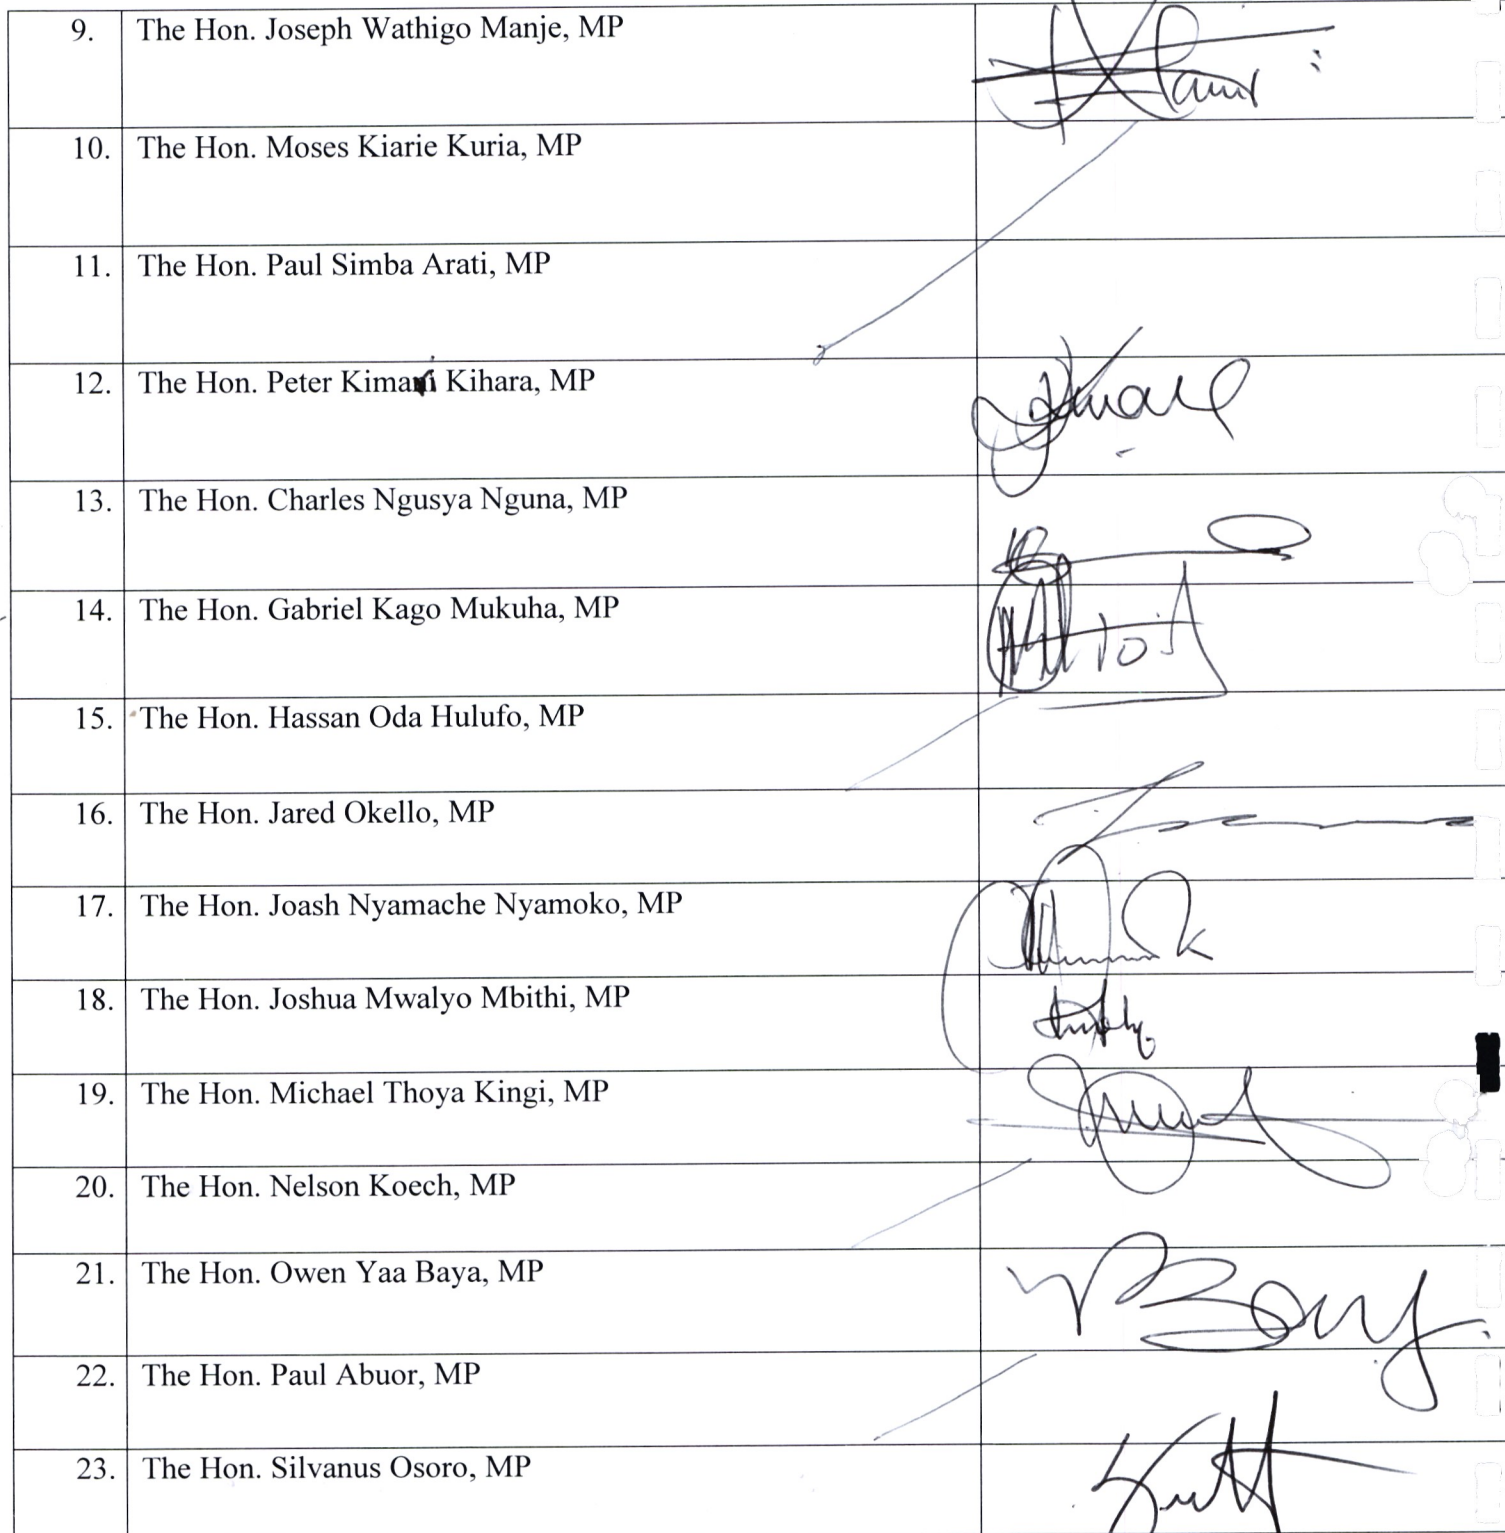 9. The Hon. Joseph Wathigo Manje, MP
10. The Hon. Moses Kiarie Kuria, MP
11. The Hon. Paul Simba Arati, MP
12. The Hon. Peter Kimari Kihara, MP
13. The Hon. Charles Ngusya Nguna, MP
14. The Hon. Gabriel Kago Mukuha, MP
15. The Hon. Hassan Oda Hulufo, MP
16. The Hon. Jared Okello, MP
17. The Hon. Joash Nyamache Nyamoko, MP
18. The Hon. Joshua Mwalyo Mbithi, MP
19. The Hon. Michael Thoya Kingi, MP
20. The Hon. Nelson Koech, MP
21. The Hon. Owen Yaa Baya, MP
22. The Hon. Paul Abuor, MP
23. The Hon. Silvanus Osoro, MP